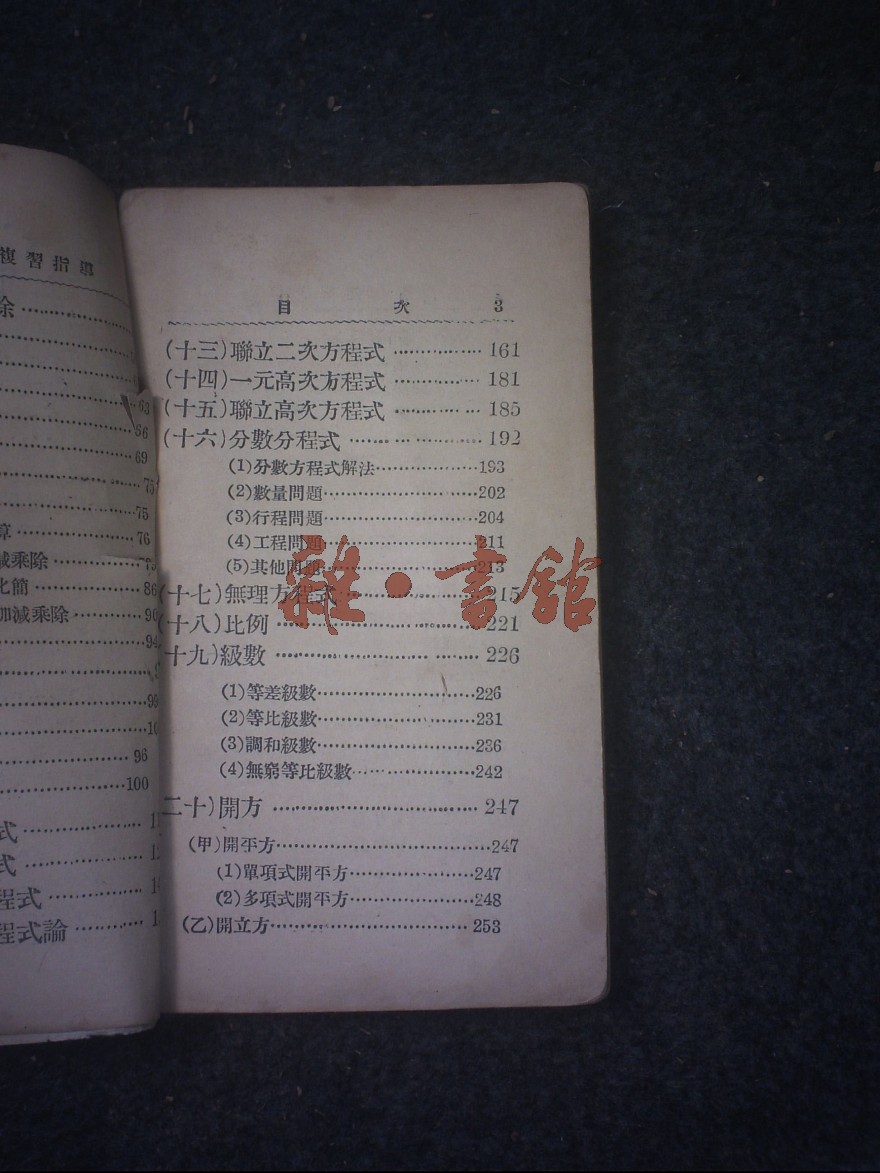 複習指導
除
63
66
69
75
75
算 76
減乘除 79
化簡 86
加減乘除 90
94
99
96
100
式
式
程式
程式論
目 次 3
(十三)聯立二次方程式 161
(十四)一元高次方程式 181
(十五)聯立高次方程式 185
(十六)分數分程式 192
(1)分數方程式解法 193
(2)數量問題 202
(3)行程問題 204
(4)工程問題 211
(5)其他問題 213
(十七)無理方程式 215
(十八)比例 221
十九)級數 226
(1)等差級數 226
(2)等比級數 231
(3)調和級數 236
(4)無窮等比級數 242
二十)開方 247
(甲)開平方 247
(1)單項式開平方 247
(2)多項式開平方 248
(乙)開立方 253
雜·書館